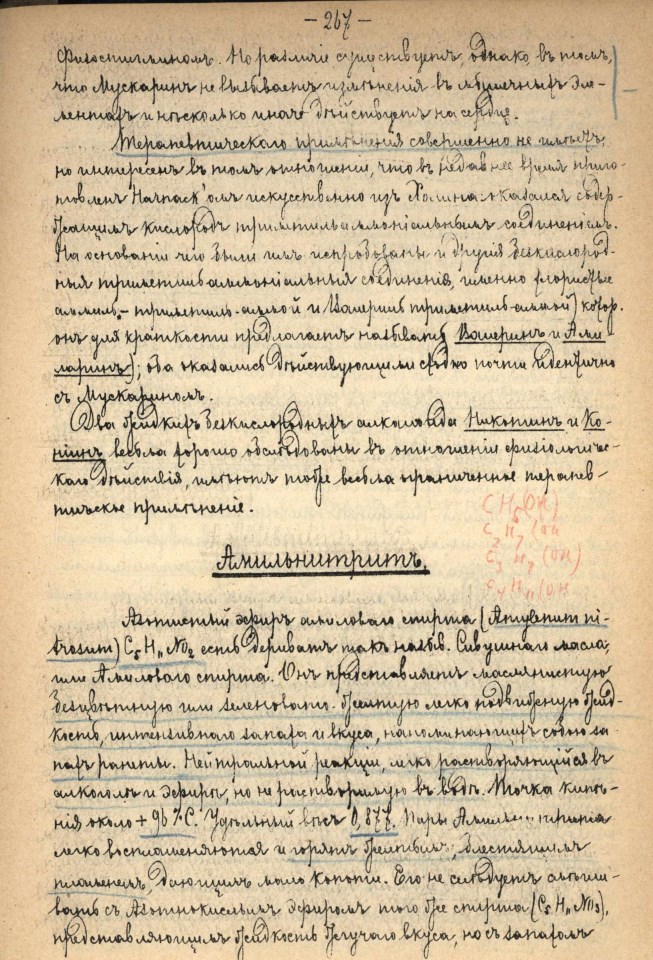 — 267 —
Физостигмином. Но различіе существуетъ, однако, въ томъ,
что Мускаринъ не вызываетъ измѣненія въ мышечныхъ эле-
ментахъ и нѣсколько иначе дѣйствуетъ на сердце.
Терапевтическаго примѣненія совершенно не имѣетъ,
но интересенъ въ томъ отношеніи, что въ недавнее время приго-
товленъ Harnack'омъ искусственно изъ Холина и оказался содер-
жащимъ кислородъ триметильаммоніальнымъ соединеніемъ.
На основаніи чего были имъ испробованы и другія безкислород-
ныя триметильаммоніальныя соединенія, именно хлористые
амилъ-триметилъ-аммон и Валерилъ триметилъ-аммон) котор.
онъ для краткости предлагаетъ называть Валеринъ и Ами-
ларинъ); оба оказались дѣйствующими сходно почти идентично
съ Мускариномъ.
Два жидкихъ безкислородныхъ алкалоида Никотинъ и Ко-
ніинъ весьма хорошо обслѣдованы въ отношеніи физіологиче-
скаго дѣйствія, имѣютъ тоже весьма ограниченное терапев-
тическое примѣненіе.
CH5(OH)
C2H7(OH
C3H7(OH)
C4H11(OH
Амильнитритъ.
Азотистый эфиръ амиловаго спирта (Amylenum ni-
trosum) C5H11NO2 есть дериватъ такъ назыв. Сивушнаго масла,
или Амиловаго спирта. Онъ представляетъ маслянистую
безцвѣтную или зеленовато-желтую легко подвижную жид-
кость, интенсивнаго запаха и вкуса, напоминающихъ собою за-
пахъ ранеты. Нейтральной реакціи, легко растворяющійся въ
алкоголѣ и эфирѣ, но не растворимую въ водѣ. Точка кипѣ-
нія около +96°C. Удѣльный вѣсъ 0,877. Пары Амильнитрита
легко воспламеняются и горятъ желтымъ, блестящимъ
пламенемъ, дающимъ мало копоти. Его не слѣдуетъ смѣши-
вать съ Азотнокислымъ эфиромъ того же спирта (C5H11NO3),
представляющимъ жидкость жгучаго вкуса, но съ запахомъ